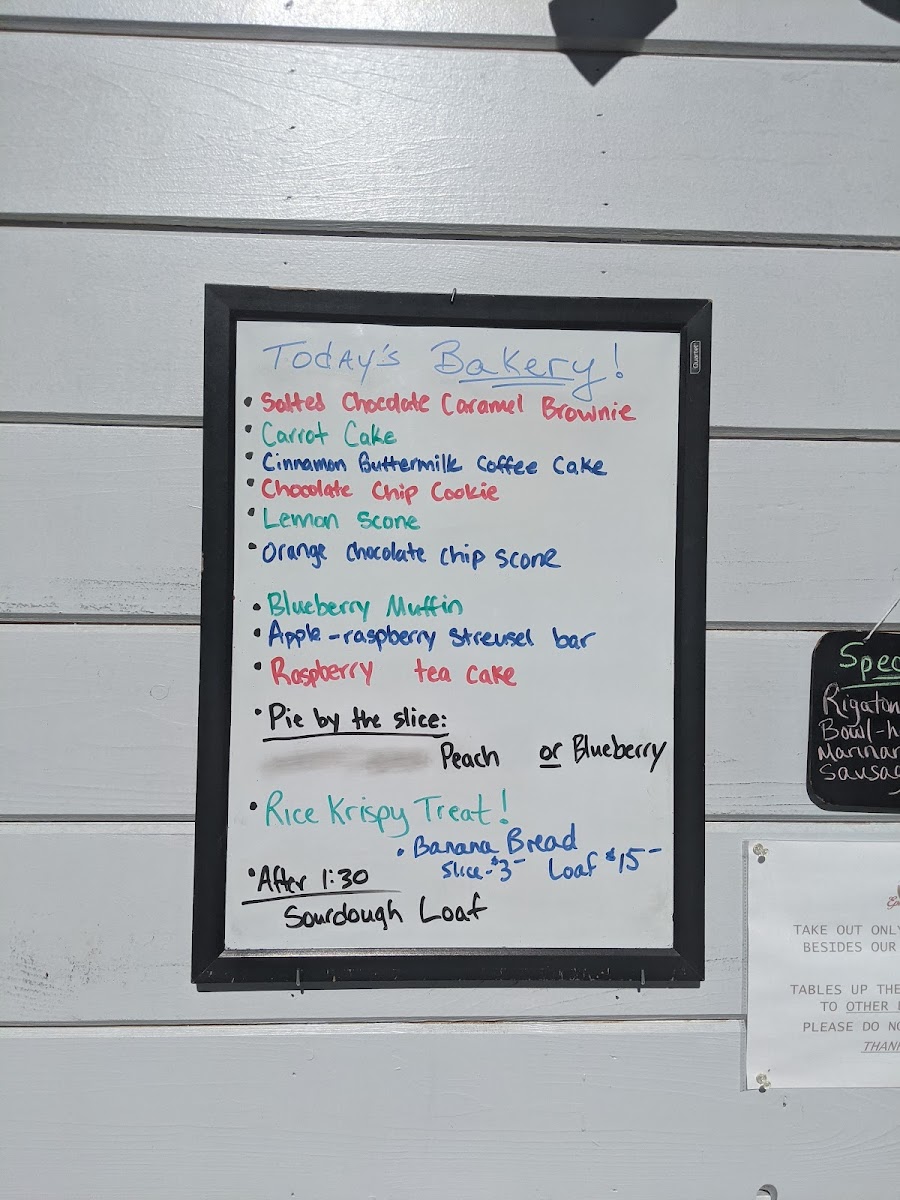 Today's Bakery!
• Salted Chocolate Caramel Brownie
• Carrot Cake
• Cinnamon Buttermilk Coffee Cake
• Chocolate Chip Cookie
• Lemon Scone
• Orange chocolate chip scone
• Blueberry Muffin
• Apple-raspberry streusel bar
• Raspberry tea cake
• Pie by the slice:
Peach or Blueberry
• Rice Krispy Treat!
• Banana Bread
Slice-$3- Loaf $15-
• After 1:30
Sourdough Loaf
Quartet
Spec
Rigaton
Bowl-h
Marinar
Sausag
TAKE OUT ONLY
BESIDES OUR
TABLES UP THE
TO OTHER
PLEASE DO NO
THAN